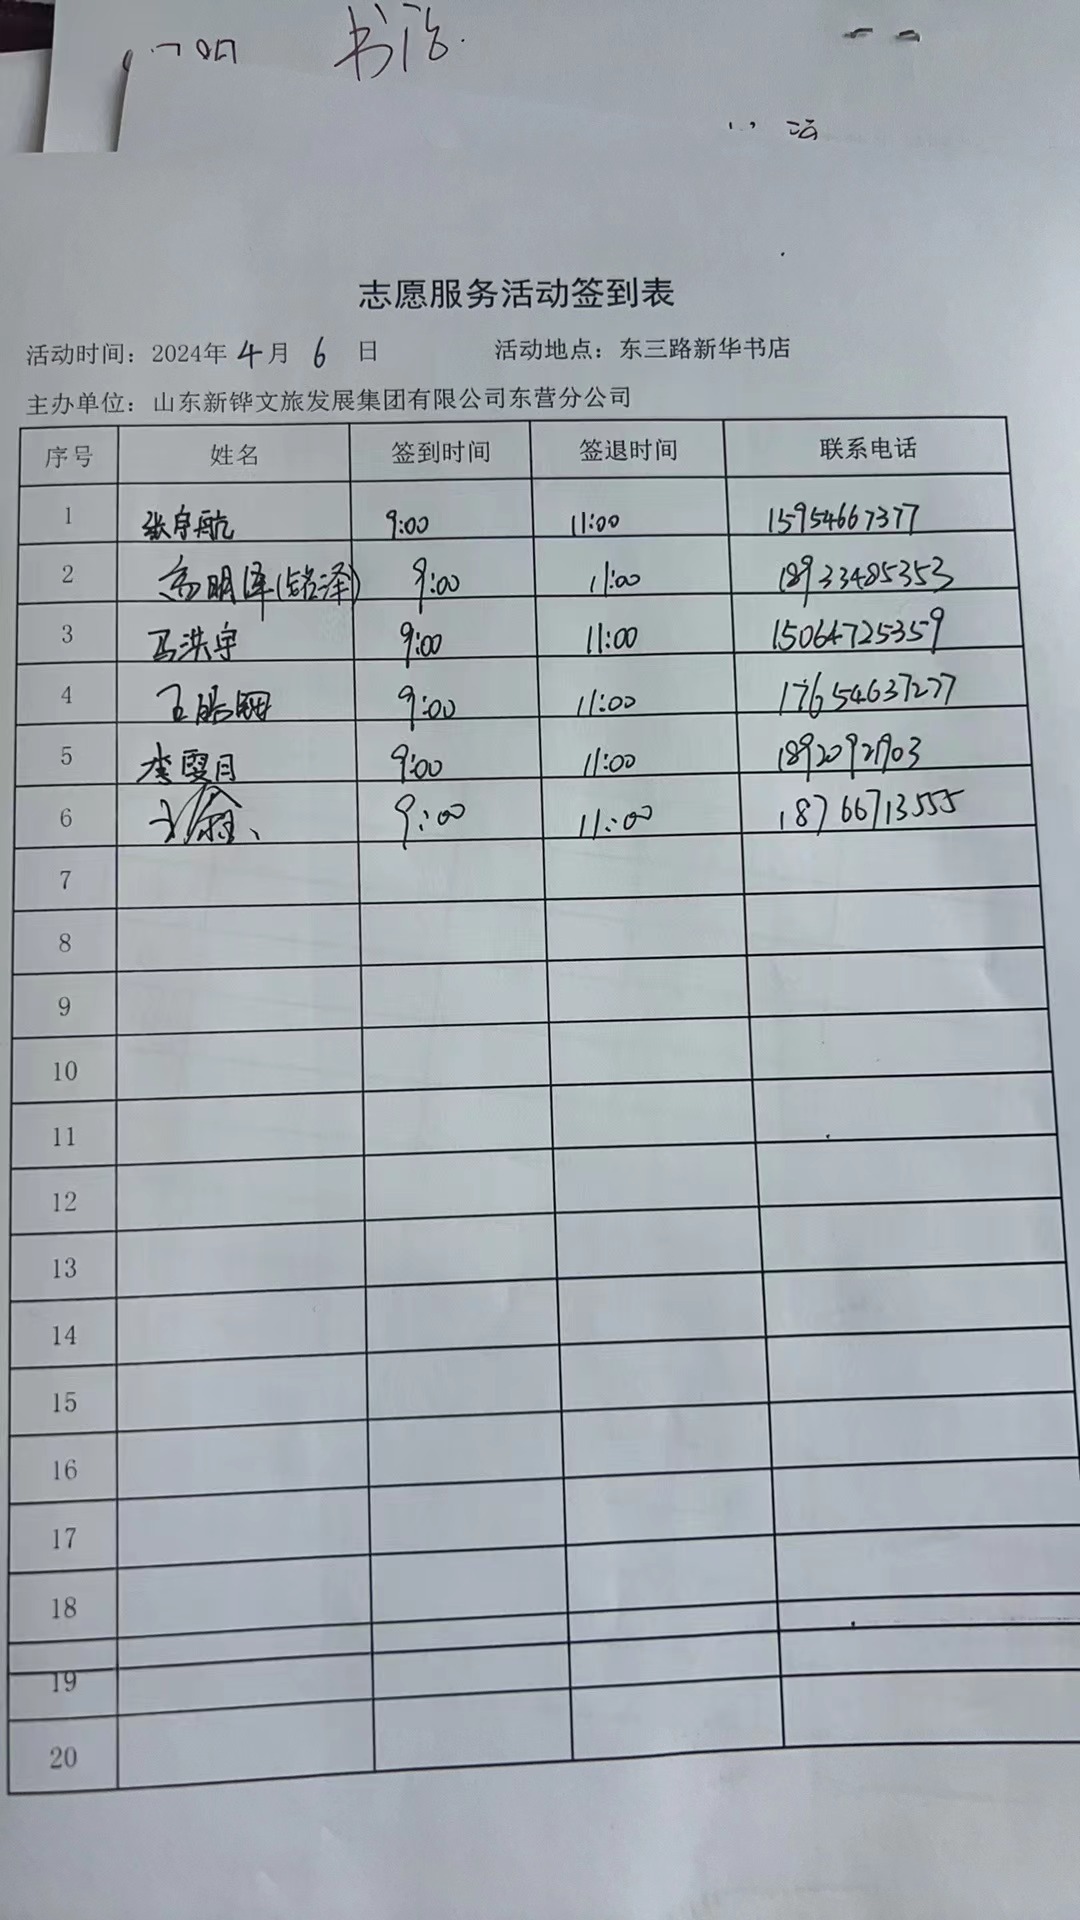 书法
志愿服务活动签到表
活动时间：2024年 4 月 6 日 活动地点：东三路新华书店
主办单位：山东新铧文旅发展集团有限公司东营分公司
序号 姓名 签到时间 签退时间 联系电话
1 张宇航 9:00 11:00 15954667377
2 明泽(铭泽) 9:00 11:00 18933485353
3 马洪宇 9:00 11:00 15064725359
4 王皓 9:00 11:00 17654637277
5 李雯月 9:00 11:00 18920921903
6 9:00 11:00 18766713555
7
8
9
10
11
12
13
14
15
16
17
18
19
20